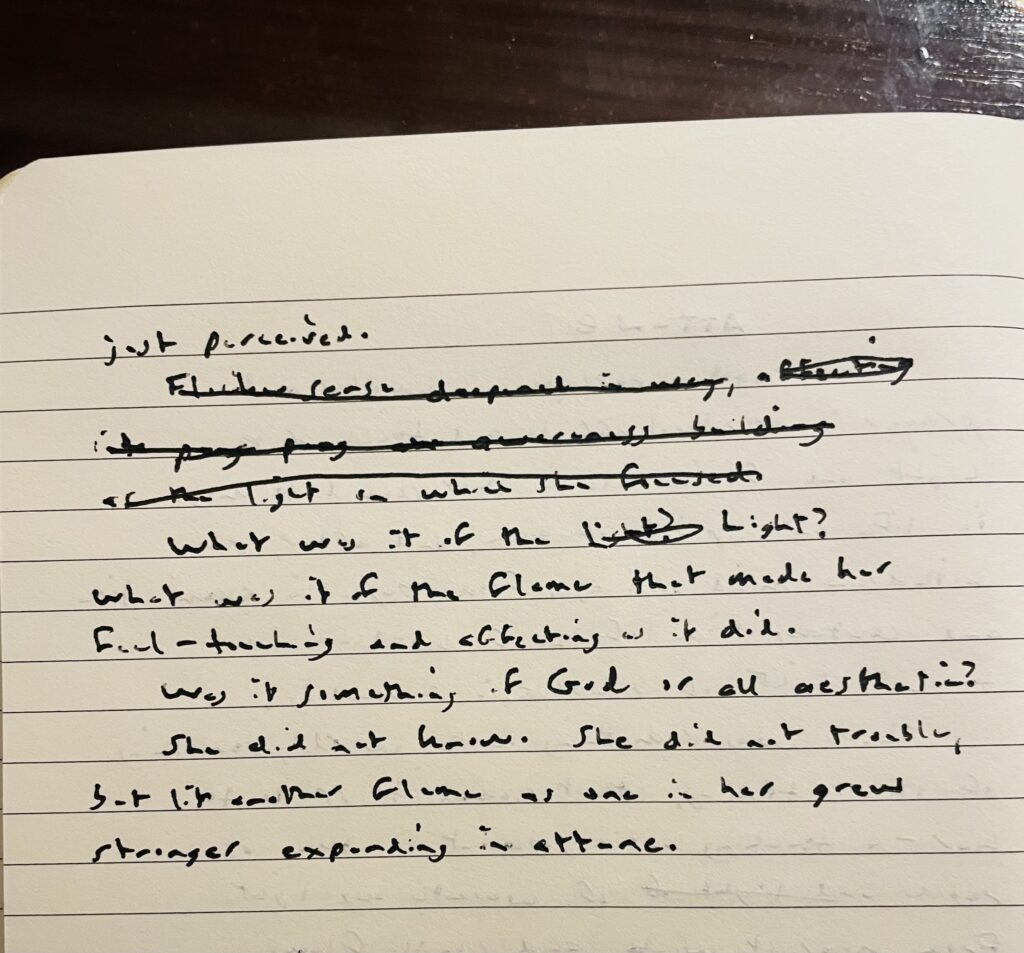 just perceived.
sense in way,
awareness building
as the light in which she focused.
What was it of the light? Light?
What was it of the flame that made her
feel - touching and affecting as it did.
Was it something of God or all aesthetic?
She did not know. She did not trouble,
but lit another flame as one in her grew
stronger expanding in attune.